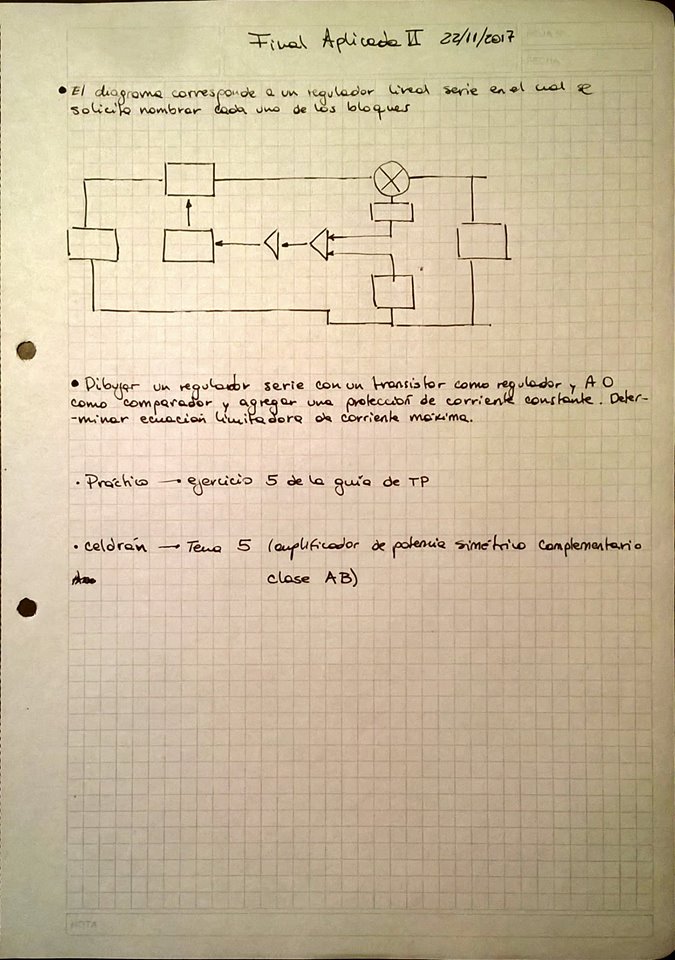 Final Aplicada II 22/11/2017
• El diagrama corresponde a un regulador lineal serie en el cual se
solicita nombrar cada uno de los bloques
• Dibujar un regulador serie con un transistor como regulador y A O
como comparador y agregar una protección de corriente constante. Deter-
-minar ecuación limitadora de corriente máxima.
· Práctico → ejercicio 5 de la guía de TP
· celdrán → Tema 5 (amplificador de potencia simétrico complementario
clase AB)
NOTA